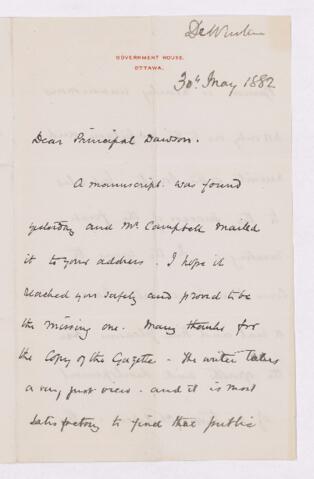 De Winton
GOVERNMENT HOUSE.
OTTAWA.
30th May 1882
Dear Principal Dawson.
A manuscript was found
yesterday and Mr Campbell mailed
it to your address. I hope it
reached you safely and proved to be
the missing one. Many thanks for
the Copy of the Gazette - The writer takes
a very just view. and it is most
satisfactory to find that public